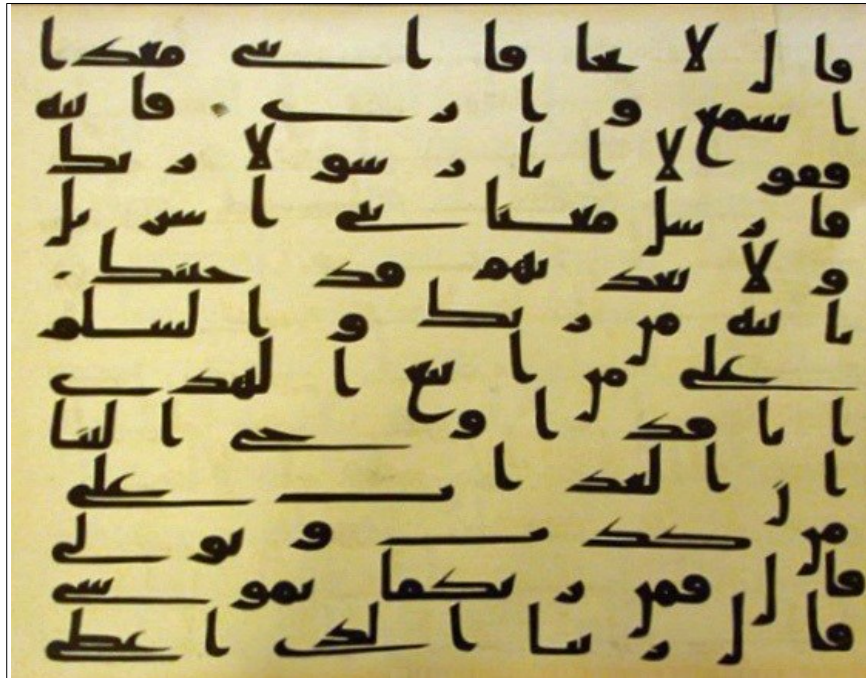 قال لا تخافا اننى معكما
اسمع وارى فاتيه
فقولا انا رسولا ربك
فارسل معنا بنى اسريل
ولا تعذبهم قد جئنك
بايه من ربك والسلم
على من اتبع الهدى
انا قد اوحى الينا
ان العذاب على
من كذب وتولى
قال فمن ربكما يموسى
قال ربنا الذى اعطى